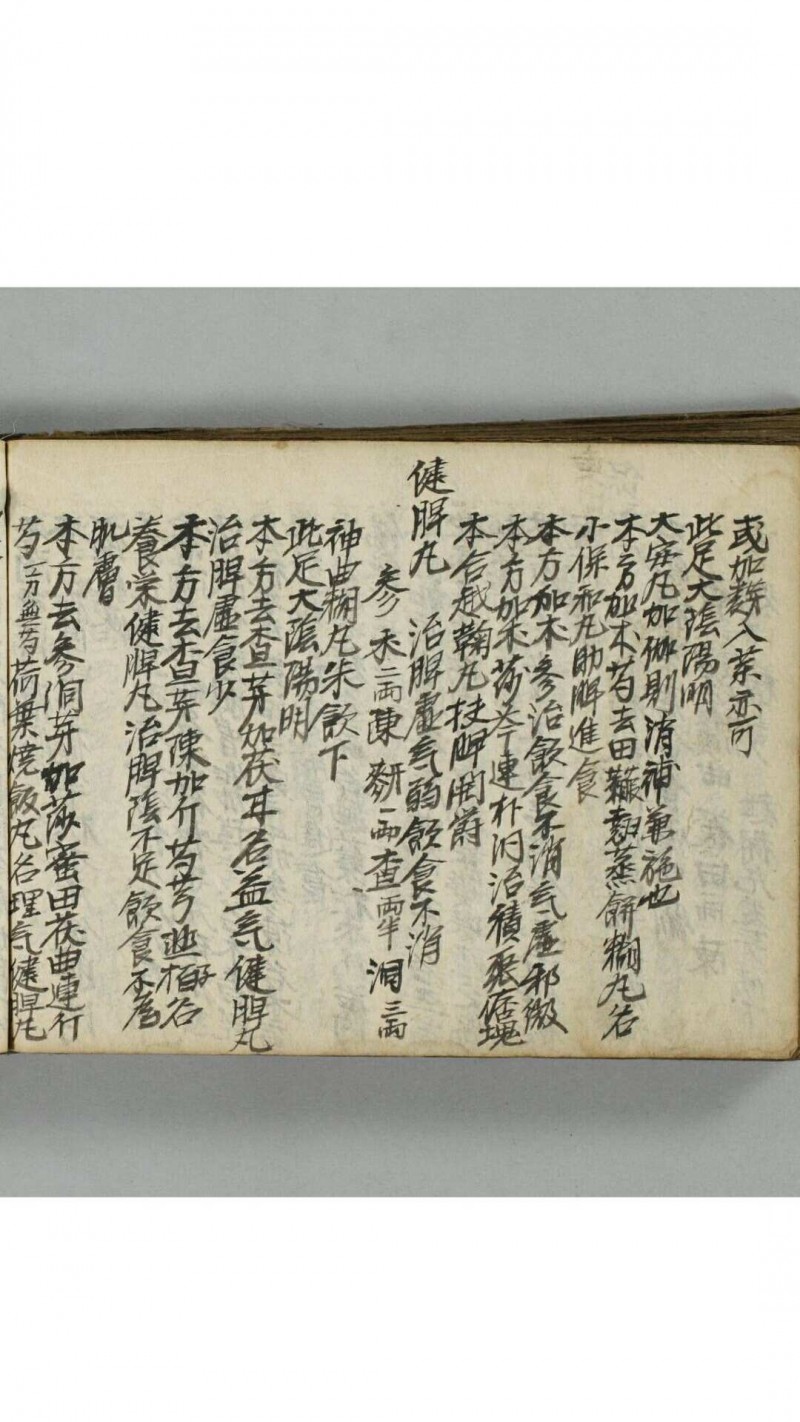 或加麩入菜亦可
此足太陰陽明
大安丸加術則消補兼施也
本方加朮芍去田蘿麩蒸餅糊丸名
小保和丸助脾進食
本方加朮參治飲食不消气虛邪微
本方加朮莎芩連朴治積聚痞塊
本合越鞠丸扶脾開鬱
健脾丸　治脾虛气弱飲食不消
參 朮二兩陳 麩一兩查一兩半 三兩
神曲糊丸朱飲下
此足大陰陽明
本方去查芽加茯甘名益气健脾丸
治脾虛食少
本方去查芽陳加芍芎 柏名
養荣健脾丸治脾陰不足飲食不為
肌膚
本方去參 芽加莎蜜田茯曲連
芍一方無芍荷葉燒飯丸名理气健脾丸